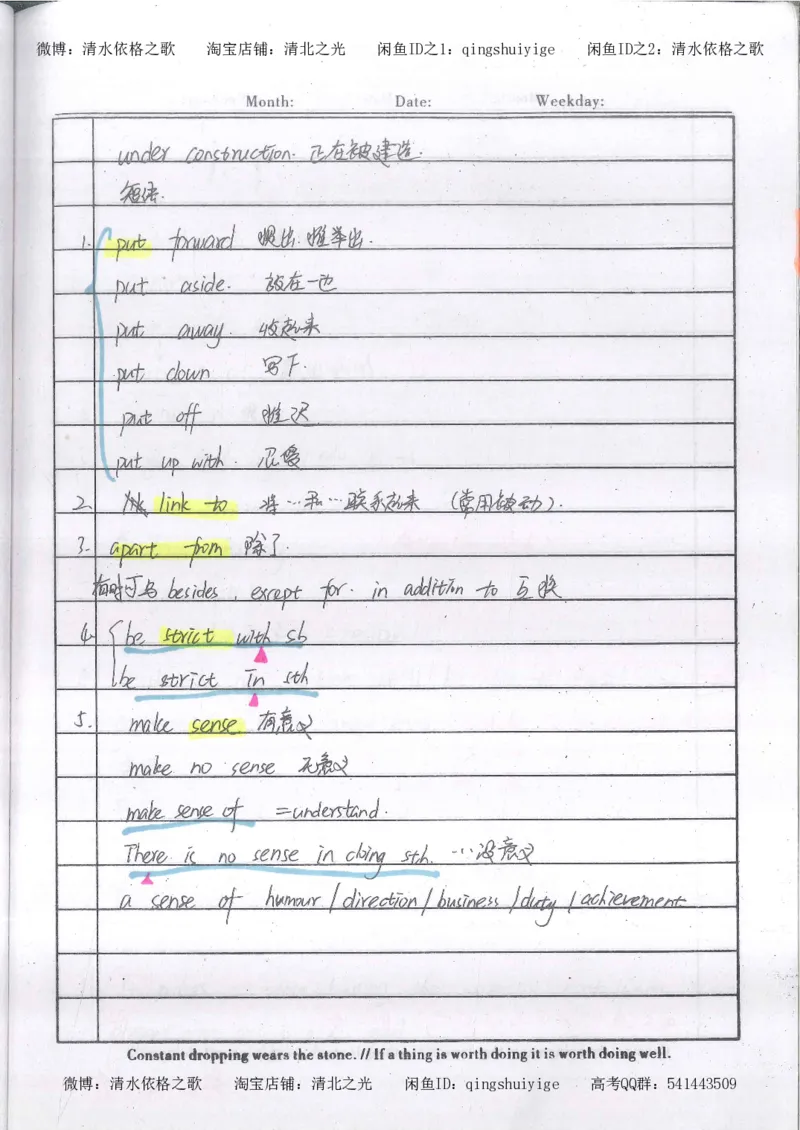 微博：清水依格之歌 淘宝店铺：清北之光 闲鱼ID之1：qingshuiyige 闲鱼ID之2：清水依格之歌
Month: Date: Weekday:
under construction. 正在被建造.
短语.
1. put forward 提出.推举出.
put aside. 放在一边
put away. 收起来
put down 写下.
put off 推迟
put up with. 忍受
2. link to 将…和…联系起来 (常用被动).
3. apart from 除了.
有时可与 besides, except for. in addition to 互换
4. be strict with sb
be strict in sth
5. make sense 有意义
make no sense 无意义
make sense of =understand.
There is no sense in doing sth. …没意义
a sense of humour / direction / business / duty / achievement
Constant dropping wears the stone. // If a thing is worth doing it is worth doing well.
微博：清水依格之歌 淘宝店铺：清北之光 闲鱼ID：qingshuiyige 高考QQ群：541443509